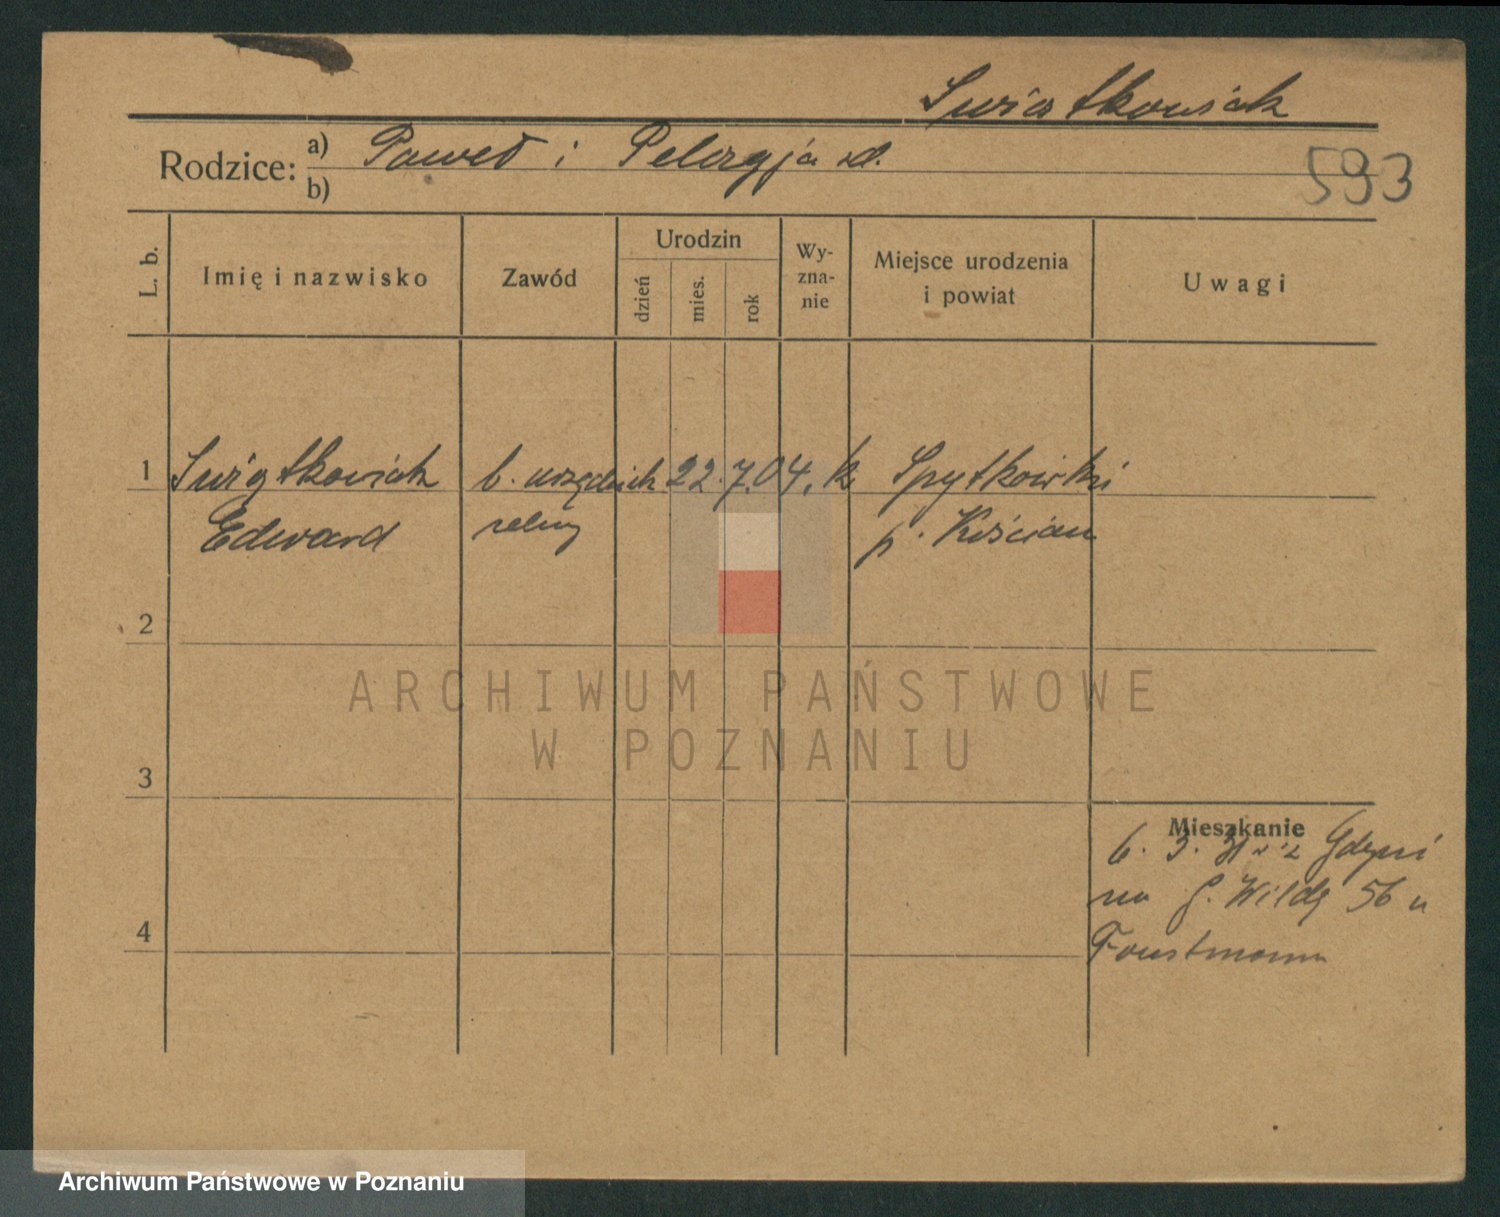 Swiatkowiak
Rodzice: a) Paweł i Pelagja zd.
b)
593
L. b.
Imię i nazwisko
Zawód
Urodzin
dzień
mies.
rok
Wy-
zna-
nie
Miejsce urodzenia
i powiat
Uwagi
1 Swiątkowiak b. urzędnik 22. 7. 04. k Spytkówki
Edward rolny p. Kościan
2
ARCHIWUM PAŃSTWOWE
W POZNANIU
3
Mieszkanie
6. 3. 31 z Gdyni
na G. Wildę 56 u
4
Faustmann
Archiwum Państwowe w Poznaniu